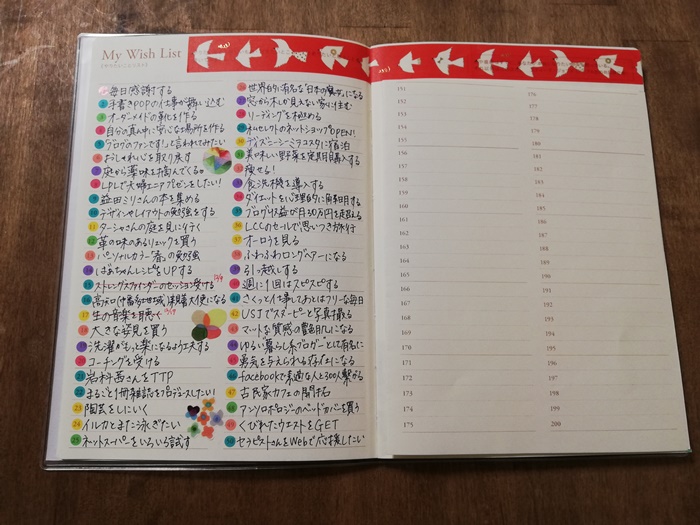 My Wish List
毎日感謝する
手書きPOPの仕事が舞い込む
オーダーメイドの革靴を作る
自分の真ん中に安心な場所を作る
ブログのファンです！と言われてみたい
おしゃれレイを取り戻す
庭から薬味を摘んでくる。
LPLで夫婦エニアプゼンをしたい！
益田ミリさんの本を集める
デザインやレイアウトの勉強をする
ターシャさんの庭を見に行く
革の味のあるリュックを買う
パーソナルカラー"春"の勉強
ばあちゃんレシピをUPする
ストレングスファインダーのセッション受ける
生の音楽を聴く
大きな姿見を買う
洗濯がもっと楽になるよう工夫する
コーチングを受ける
岩科茜さんをTTP
まるごと1冊雑誌をプロデュースしたい！
23 陶芸をしにいく
24 イルカとまた泳ぎたい
25 ネットスーパーをいろいろ試す
世界的有名な"日本の翼"になる
窓から木しか見えない家に住む
リーディングを極める
セレクトのネットショップOPEN!
ディズニーシーミラコスタに宿泊
美味しい野菜を定期購入する
痩せる！
食洗機を導入する
ダイエットを心理的に解明する
ブログ収益が月30万円を超える
LCCのセールで思いつき旅行
オーロラを見る
ふわふわロングヘアーになる
引っ越しする
週に1回はスピスピする
さくっと仕事してあとはフリーな毎日
USJでスヌーピーと写真撮る
マットな質感の艶肌になる
ゆるい暮らし系ブロガーとして有名に
勇気を与えられる存在になる
facebookで素適な人と300人繋がる
古民家カフェの開拓
アンソロポロジーのベッドカバーを買う
くびれたウエストをGET
セラピストさんをWebで応援したい
151
152
153
154
155
156
157
158
159
160
161
162
163
164
165
166
167
168
169
170
171
172
173
174
175
176
177
178
179
180
181
182
183
184
185
186
187
188
189
190
191
192
193
194
195
196
197
198
199
200